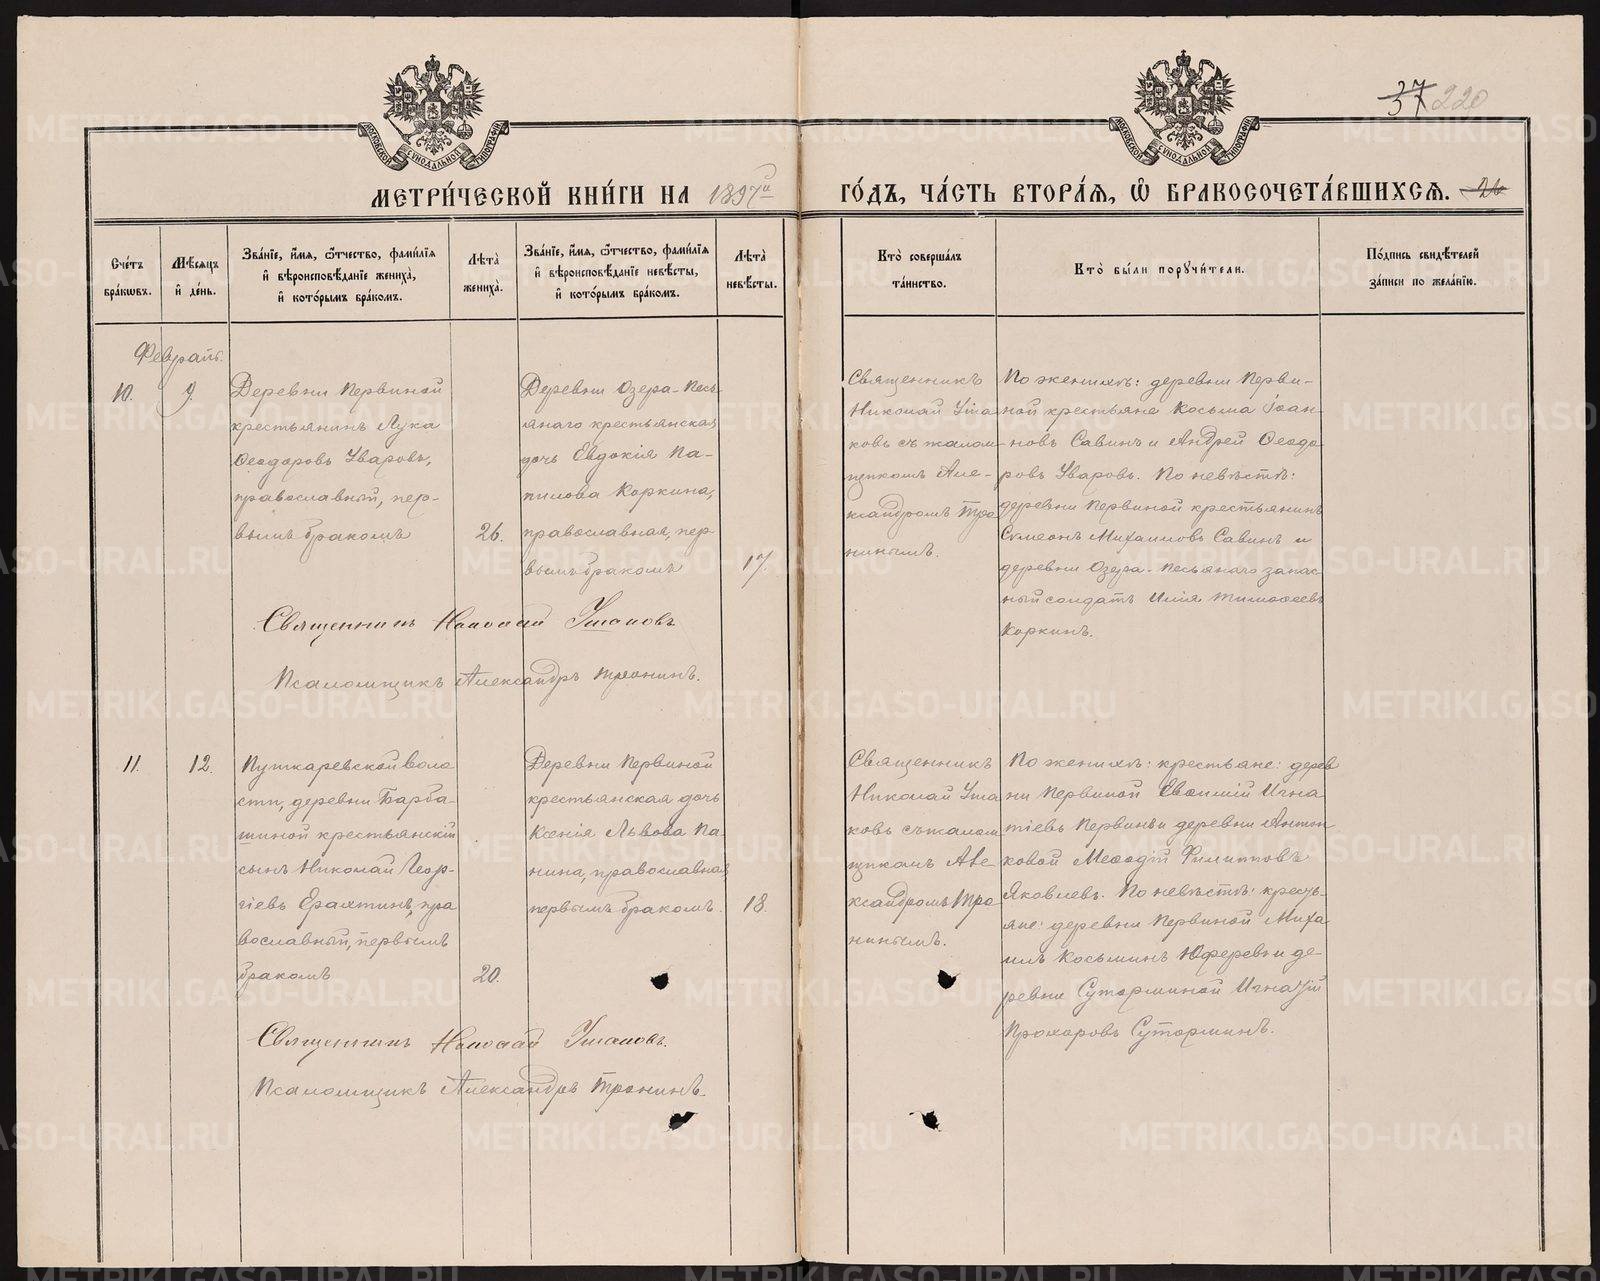 37 220
МОСКОВСКОЙ СУНОДАЛЬНОЙ ТИПОГРАФІИ
МОСКОВСКОЙ СУНОДАЛЬНОЙ ТИПОГРАФІИ
МЕТРИ́ЧЕСКОЙ КНИ́ГИ НА 1897й
ГО́ДЪ, ЧА́СТЬ ВТОРА́Я, Ѿ БРАКОСОЧЕТА́ВШИХСЯ. 26
Сче́тъ
бра́кѡвъ.
Мѣ́сяцъ
и҆ де́нь.
Зва́нїе, и҆́мя, ѻ҆́тчество, фами́лїя
и҆ вѣроисповѣ́данїе жениха̀,
и҆ кото́рымъ бра́комъ.
Лѣта̀
жениха̀.
Зва́нїе, и҆́мя, ѻ҆́тчество, фами́лїя
и҆ вѣроисповѣ́данїе невѣ́сты,
и҆ кото́рымъ бра́комъ.
Лѣта̀
невѣ́сты.
Кто̀ соверша́лъ
та́инство.
Кто̀ бы́ли порꙋчи́тели.
По́дпись свидѣ́телей
за́писи по жела́нїю.
Февраль.
10.
9.
Деревни Первиной
крестьянинъ Лука
Ѳеодоровъ Уваровъ,
православный, пер-
вымъ бракомъ
26.
Деревни Озера-Песь-
янаго крестьянская
дочь Евдокія Па-
пилова Коркина,
православная, пер
вымъ бракомъ
17.
Священникъ
Николай Уша
ковъ съ псалом-
щикомъ Але-
ксандромъ Тро
нинымъ.
По женихѣ: деревни Перви-
ной крестьяне Косьма Іоан-
новъ Савинъ и Андрей Ѳеодо
ровъ Уваровъ. По невѣстѣ:
деревни Первиной крестьянинъ
Симеонъ Михаиловъ Савинъ и
деревни Озера-Песьянаго запас-
ный солдатъ Илія Тимоѳеевъ
Коркинъ.
Священникъ Николай Ушаковъ
Псаломщикъ Александръ Тронинъ.
11.
12.
Путкаревской воло
сти, деревни Барба-
шиной крестьянскій
сынъ Николай Геор-
гіевъ Ерахтинъ, пра
вославный, первымъ
бракомъ
20.
Деревни Первиной
крестьянская дочь
Ксенія Львова Па-
нина, православная
первымъ бракомъ.
18.
Священникъ
Николай Уша
ковъ съ псалом
щикомъ Але
ксандромъ Тро
нинымъ.
По женихѣ: крестьяне: дерев
ни Первиной Евѳимій Игна-
тіевъ Первинъ и деревни Антон
ковой Меѳодій Филипповъ
Яковлевъ. По невѣстѣ: кресть-
яне: деревни Первиной Миха-
илъ Косьминъ Юферевъ и де-
ревни Суторминой Игнатій
Прохоровъ Суторминъ.
Священникъ Николай Ушаковъ.
Псаломщикъ Александръ Тронинъ.
METRIKI.GASO-URAL.RU